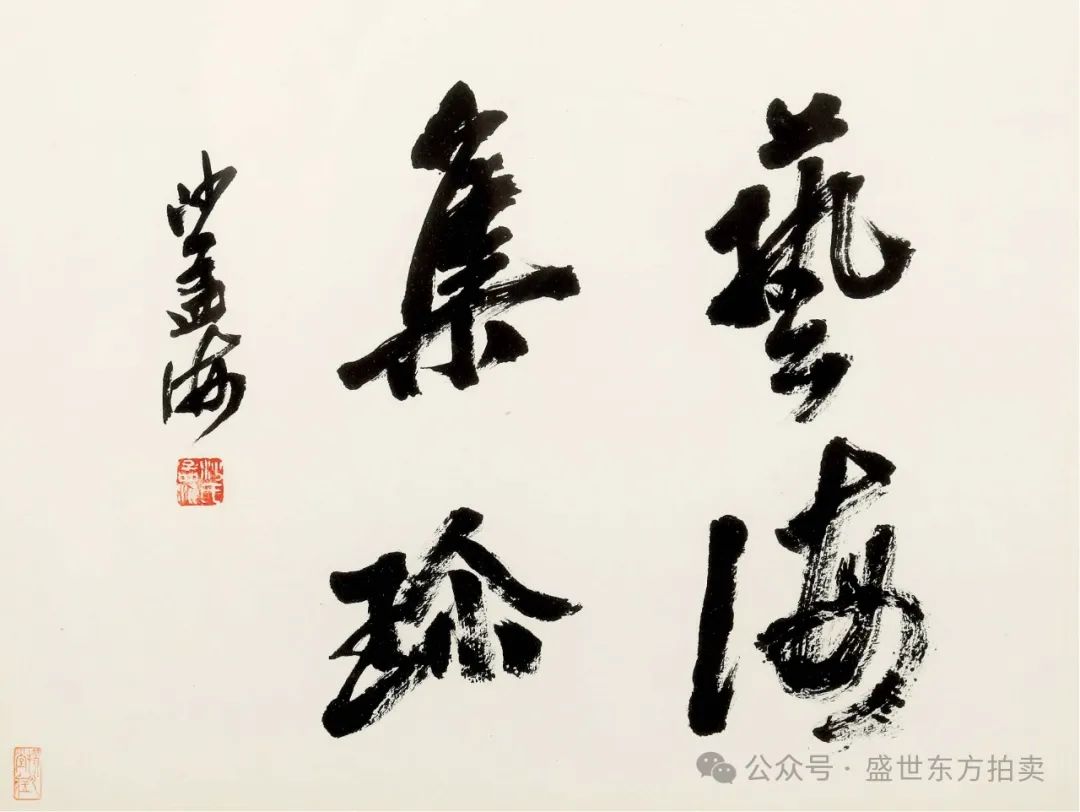 藝海
集珍
沙孟海
公众号·盛世东方拍卖